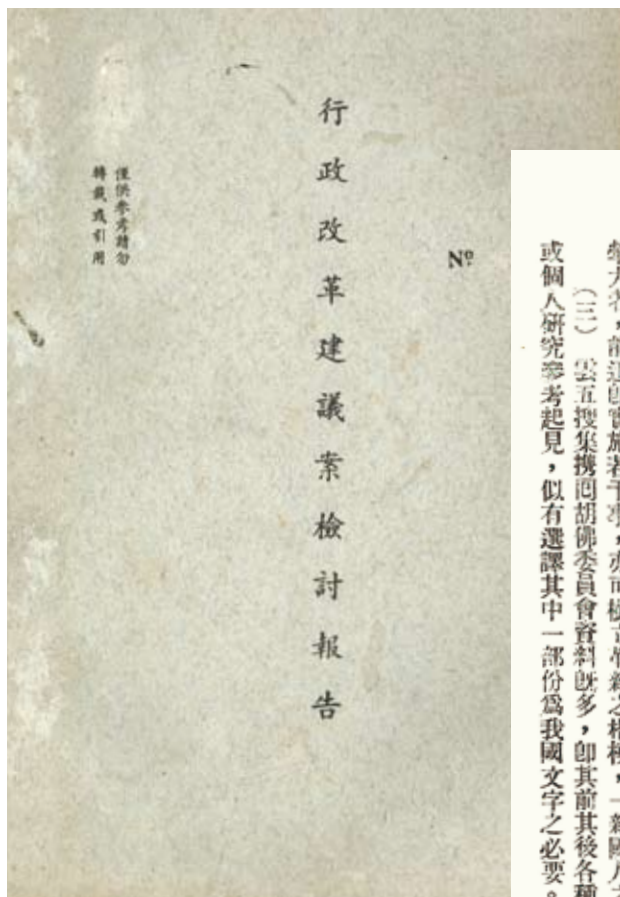 Nº
行政改革建議案檢討報告
僅供參考請勿
轉載或引用
（三）　雲五搜集攜回胡佛委員會資料既多，即其前其後各種
或個人研究參考起見，似有選譯其中一部份爲我國文字之必要。